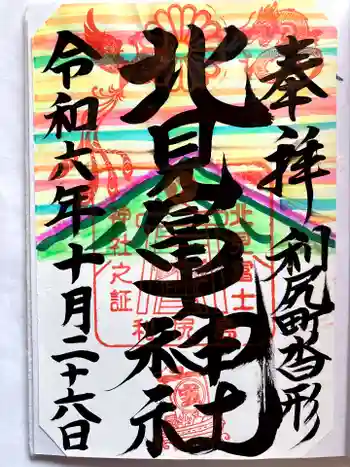 奉拝
利尻町沓形
北見富士神社
令和六年十月二十六日
神社之証